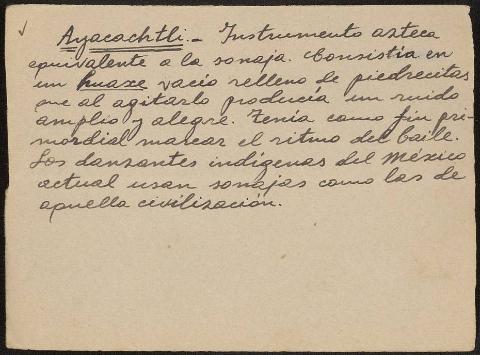 Ayacachtli.- Instrumento azteca
equivalente a la sonaja. Consistía en
un huaxe vacío relleno de piedrecitas
que al agitarlo producía un ruido
amplio y alegre. Tenía como fin pri-
mordial marcar el ritmo del baile.
Los danzantes indígenas del México
actual usan sonajas como las de
aquella civilización.